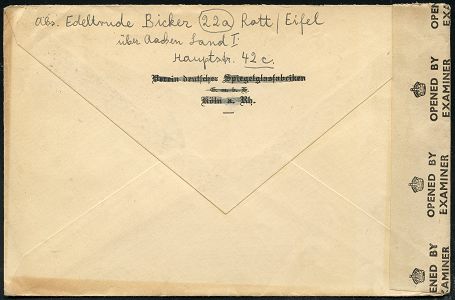 Abs. Edeltrude Bicker (22a) Rott/Eifel
über Aachen Land I
Hauptstr. 42c.
Verein deutscher Spiegelglasfabriken
G.m.b.H.
Köln a. Rh.
OPENED BY
EXAMINER
OPENED BY
EXAMINER
OPENED BY
EXAMINER
ENED BY
AMINER